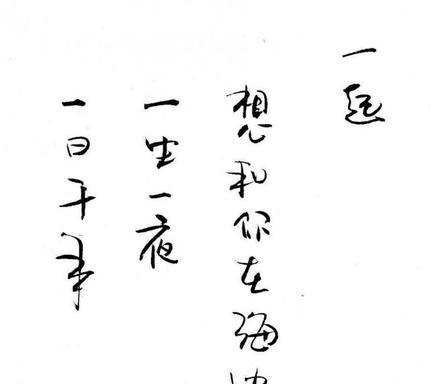 一起
想和你在海
一生一夜
一日千年